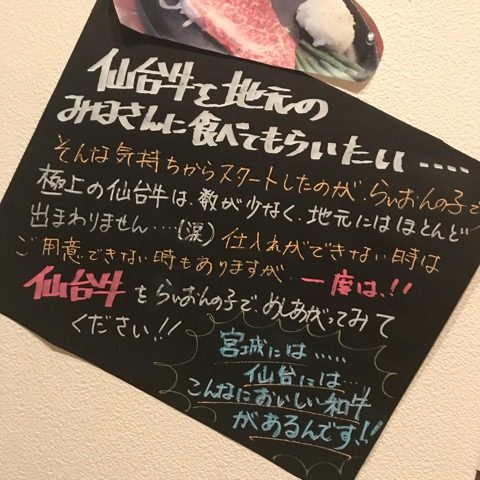 仙台牛を地元の
みなさんに食べてもらいたい‥‥
そんな気持ちからスタートしたのが、らいおんの子で
極上の仙台牛は、数が少なく、地元にはほとんど
出まわりません‥‥(涙) 仕入れができない時は
ご用意できない時もありますが、一度は、!!
仙台牛をらいおんの子で、めしあがってみて
ください!!
宮城には‥‥‥
仙台には‥‥
こんなにおいしい和牛
があるんです、!!